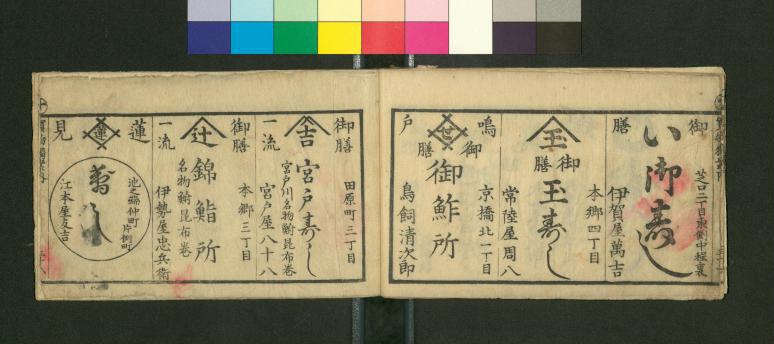 御膳
い御寿し
芝口二丁目東側中程裏
伊賀屋萬吉
玉
御膳
玉寿し
本郷四丁目
常陸屋周八
鳴戸
世
御膳
御鮓所
京橋北一丁目
鳥飼清次郎
御膳
一流
吉
宮戸寿し
宮戸川名物鯛昆布巻
田原町三丁目
宮戸屋八十八
御膳
一流
辻
錦鮨所
名物鯛昆布巻
本郷三丁目
伊勢屋忠兵衛
蓮見
蓮
寿し
池之端仲町片側町
江本屋友吉